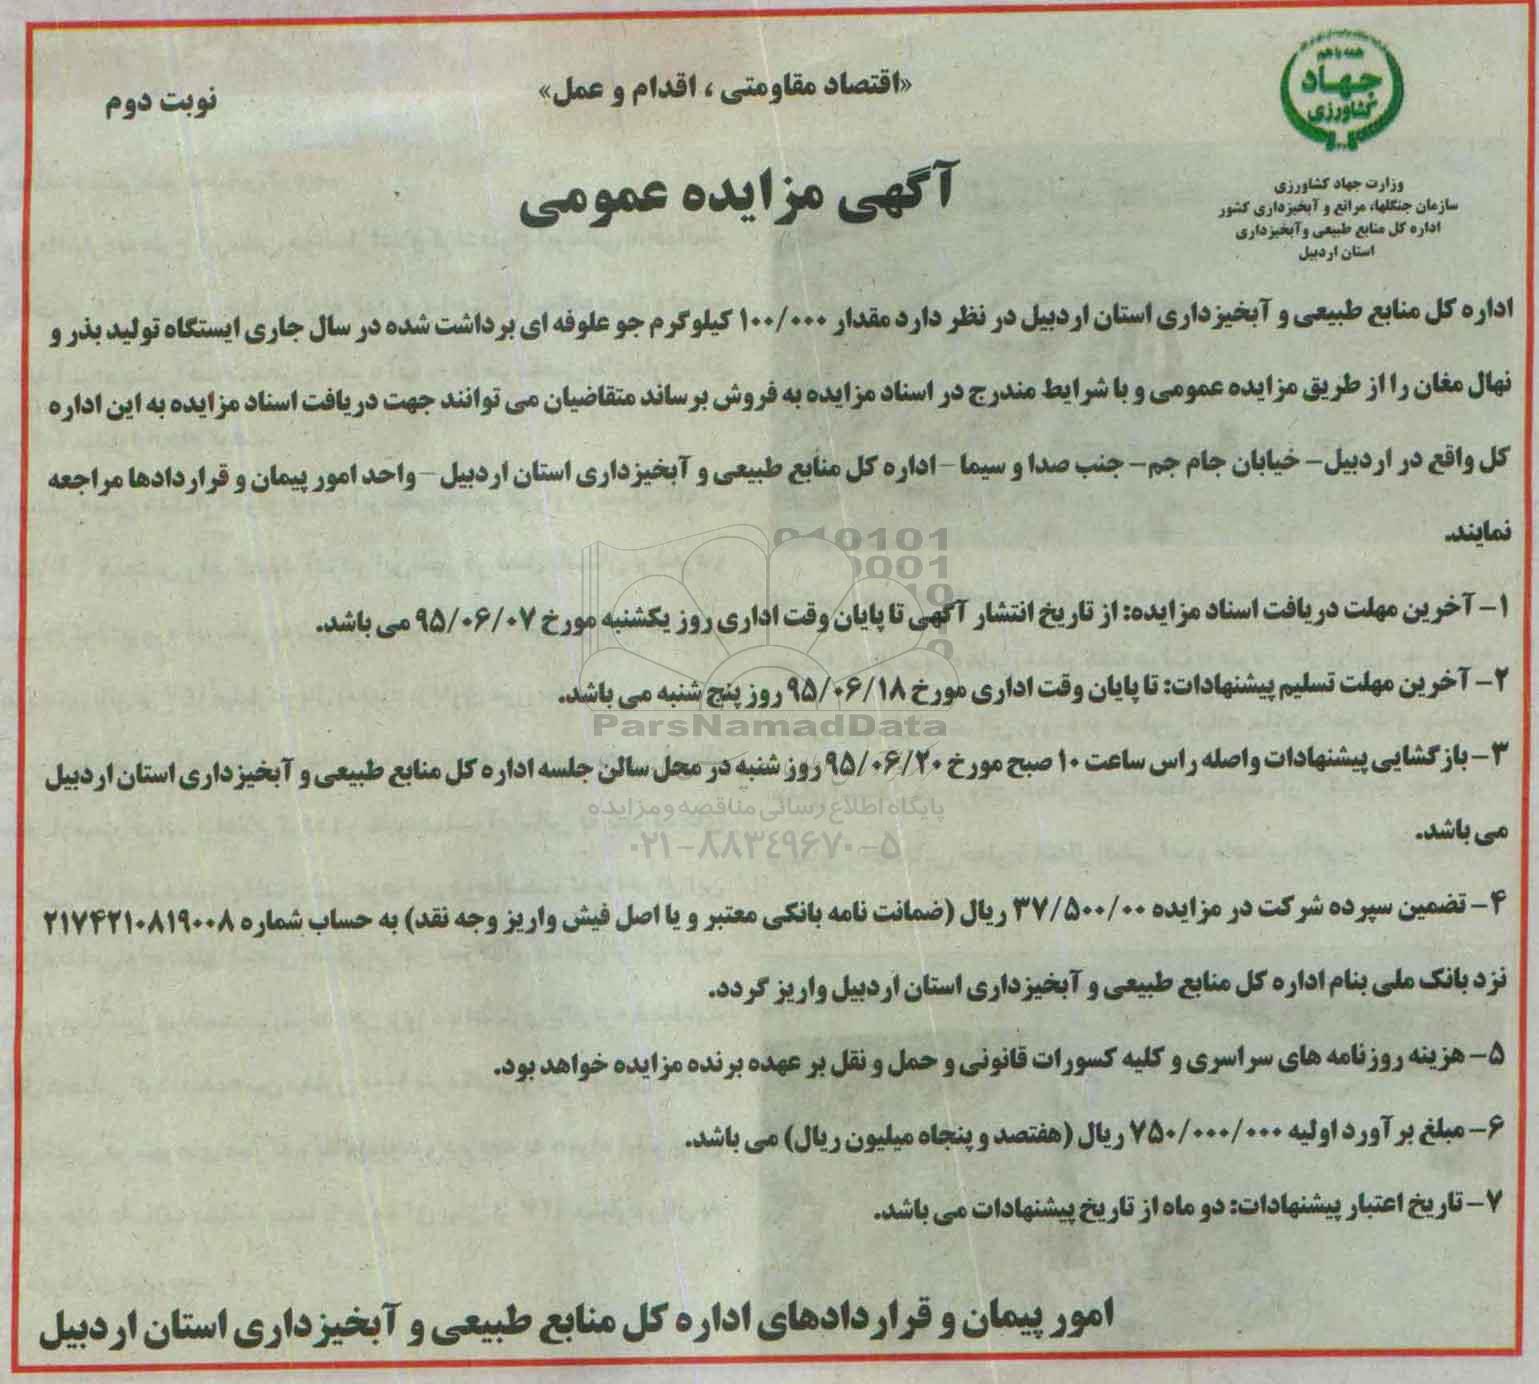 همه با هم
جهاد
کشاورزی
وزارت جهاد کشاورزی
سازمان جنگلها، مراتع و آبخیزداری کشور
اداره کل منابع طبیعی وآبخیزداری
استان اردبیل
«اقتصاد مقاومتی ، اقدام و عمل»
نوبت دوم
آگهی مزایده عمومی
اداره کل منابع طبیعی و آبخیزداری استان اردبیل در نظر دارد مقدار ۱۰۰/۰۰۰ کیلوگرم جو علوفه ای برداشت شده در سال جاری ایستگاه تولید بذر و
نهال مغان را از طریق مزایده عمومی و با شرایط مندرج در اسناد مزایده به فروش برساند متقاضیان می توانند جهت دریافت اسناد مزایده به این اداره
کل واقع در اردبیل- خیابان جام جم- جنب صدا و سیما -اداره کل منابع طبیعی و آبخیزداری استان اردبیل -واحد امور پیمان و قراردادها مراجعه
نمایند.
۱- آخرین مهلت دریافت اسناد مزایده: از تاریخ انتشار آگهی تا پایان وقت اداری روز یکشنبه مورخ ۹۵/۰۶/۰۷ می باشد.
۲- آخرین مهلت تسلیم پیشنهادات: تا پایان وقت اداری مورخ ۹۵/۰۶/۱۸ روز پنج شنبه می باشد.
۳- بازگشایی پیشنهادات واصله راس ساعت ۱۰ صبح مورخ ۹۵/۰۶/۲۰ روز شنبه در محل سالن جلسه اداره کل منابع طبیعی و آبخیزداری استان اردبیل
می باشد.
۴- تضمین سپرده شرکت در مزایده ۳۷/۵۰۰/۰۰ ریال (ضمانت نامه بانکی معتبر و یا اصل فیش واریز وجه نقد) به حساب شماره ۲۱۷۴۲۱۰۸۱۹۰۰۸
نزد بانک ملی بنام اداره کل منابع طبیعی و آبخیزداری استان اردبیل واریز گردد.
۵- هزینه روزنامه های سراسری و کلیه کسورات قانونی و حمل و نقل بر عهده برنده مزایده خواهد بود.
۶- مبلغ برآورد اولیه ۷۵۰/۰۰۰/۰۰۰ ریال (هفتصد و پنجاه میلیون ریال) می باشد.
۷- تاریخ اعتبار پیشنهادات: دو ماه از تاریخ پیشنهادات می باشد.
امور پیمان و قراردادهای اداره کل منابع طبیعی و آبخیزداری استان اردبیل
ParsNamadData
پایگاه اطلاع رسانی مناقصه و مزایده
۰۲۱-۸۸۳۴۹۶۷۰-۵